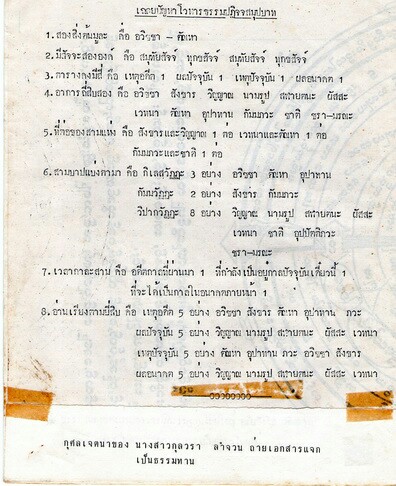 เฉลยปัญหาโวหารธรรมปฏิจจสมุปบาท
1. สองสิ่งต้นมูละ คือ อวิชชา – ตัณหา
2. มีสัจจะสององค์ คือ สมุทัยสัจจ์ ทุกขสัจจ์ สมุทัยสัจจ์ ทุกขสัจจ์
3. ตารางคงมีสี่ คือ เหตุอดีต 1 ผลปัจจุบัน 1 เหตุปัจจุบัน 1 ผลอนาคต 1
4. อาการถี่สิบสอง คือ อวิชชา สังขาร วิญญาณ นามรูป สฬายตนะ ผัสสะ
เวทนา ตัณหา อุปาทาน กัมมภวะ ชาติ ชรา-มรณะ
5. ที่ต่อของสามแห่ง คือ สังขารและวิญญาณ 1 ต่อ เวทนาและตัณหา 1 ต่อ
กัมมภวะและชาติ 1 ต่อ
6. สามบาปแบ่งตามา คือ กิเลสวัฏฏะ 3 อย่าง อวิชชา ตัณหา อุปาทาน
กัมมวัฏฏะ 2 อย่าง สังขาร กัมมภวะ
วิปากวัฏฏะ 8 อย่าง วิญญาณ นามรูป สฬายตนะ ผัสสะ
เวทนา ชาติ อุปปัตติภวะ
ชรา-มรณะ
7. เวลากาละสาม คือ อดีตกาลที่ผ่านมา 1 ที่กำลังเป็นอยู่กาลปัจจุบันเดี๋ยวนี้ 1
ที่จะได้เป็นกาลในอนาคตภายหน้า 1
8. อ่านเรียงตามยี่สิบ คือ เหตุอดีต 5 อย่าง อวิชชา สังขาร ตัณหา อุปาทาน ภวะ
ผลปัจจุบัน 5 อย่าง วิญญาณ นามรูป สฬายตนะ ผัสสะ เวทนา
เหตุปัจจุบัน 5 อย่าง ตัณหา อุปาทาน ภวะ อวิชชา สังขาร
ผลอนาคต 5 อย่าง วิญญาณ นามรูป สฬายตนะ ผัสสะ เวทนา
กุศลเจตนาของ นางสาวกุลวรา ลำจวน ถ่ายเอกสารแจก
เป็นธรรมทาน